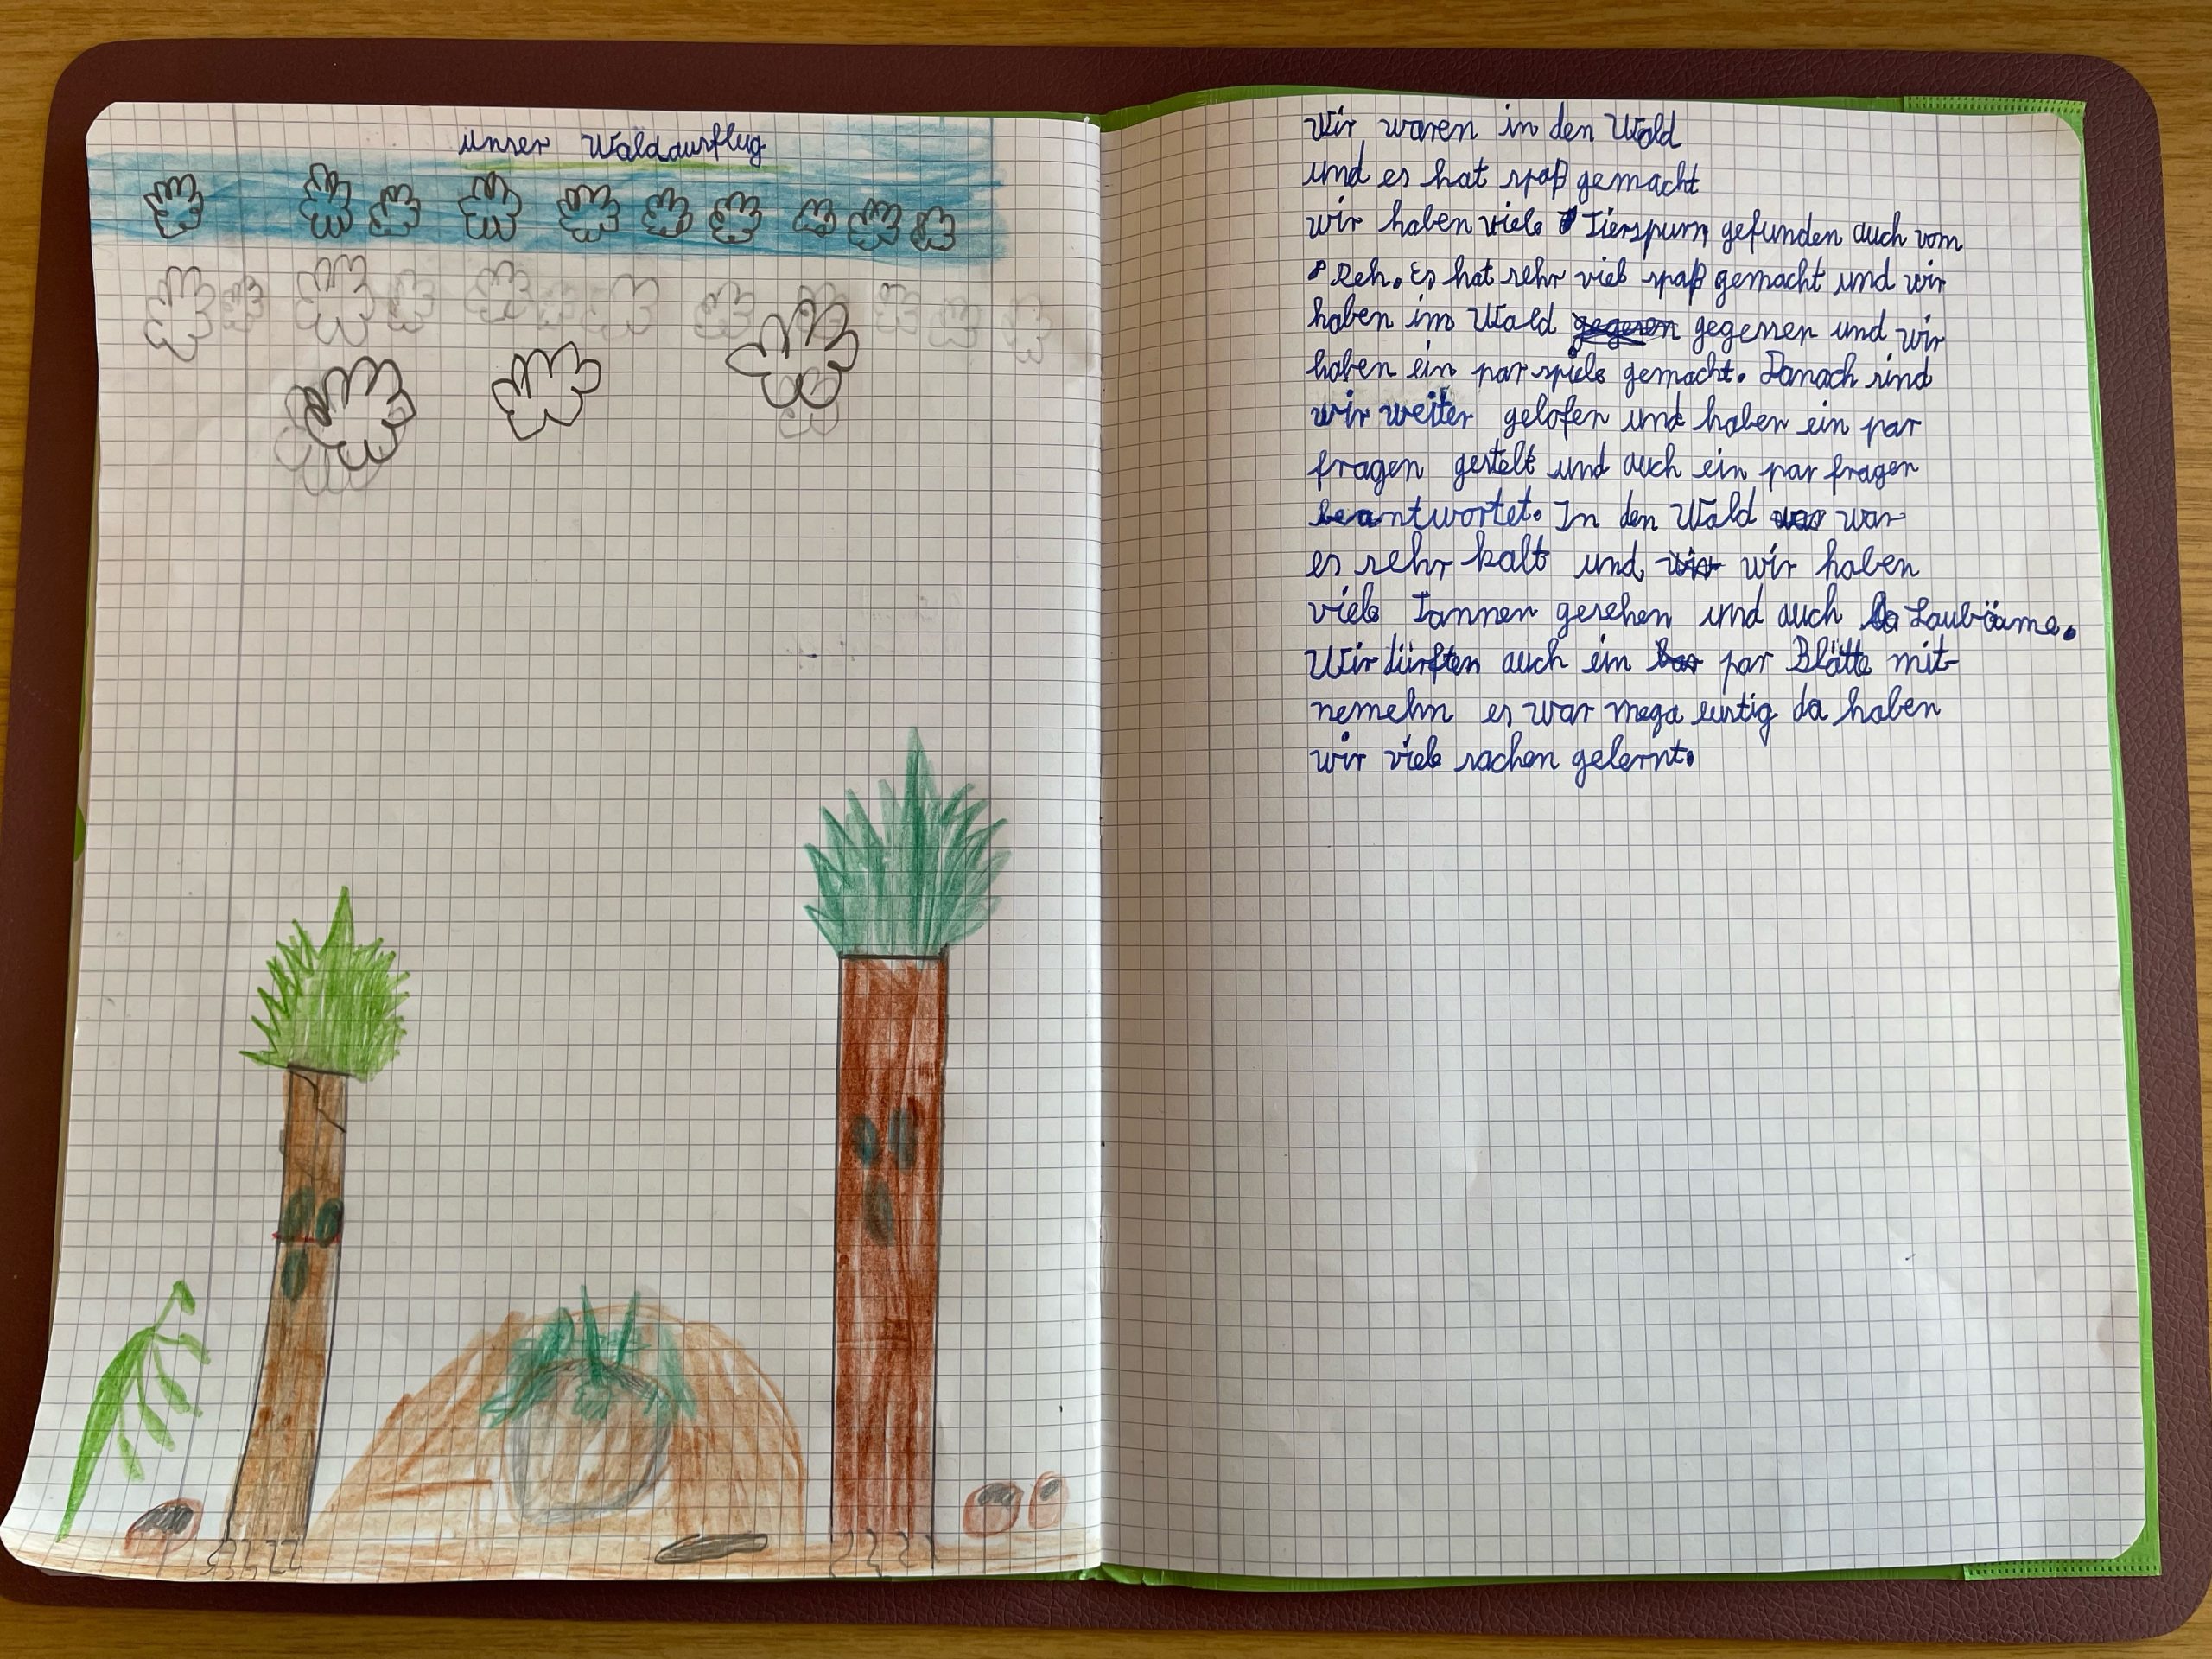 unser Waldausflug
Wir waren in den Wald
und es hat spaß gemacht
wir haben viele Tierspurn gefunden auch vom
Reh. Es hat sehr viel spaß gemacht und wir
haben im Wald gegesen gegessen und wir
haben ein par spiele gemacht. Danach sind
wir weiter gelofen und haben ein par
fragen gestelt und auch ein par fragen
beantwortet. In den Wald war
es sehr kalt und wir wir haben
viele Tannen gesehen und auch La Lauböame.
Wir dürften auch ein par Blätte mit-
nemehn es war mega lustig da haben
wir viele sachen gelernt.